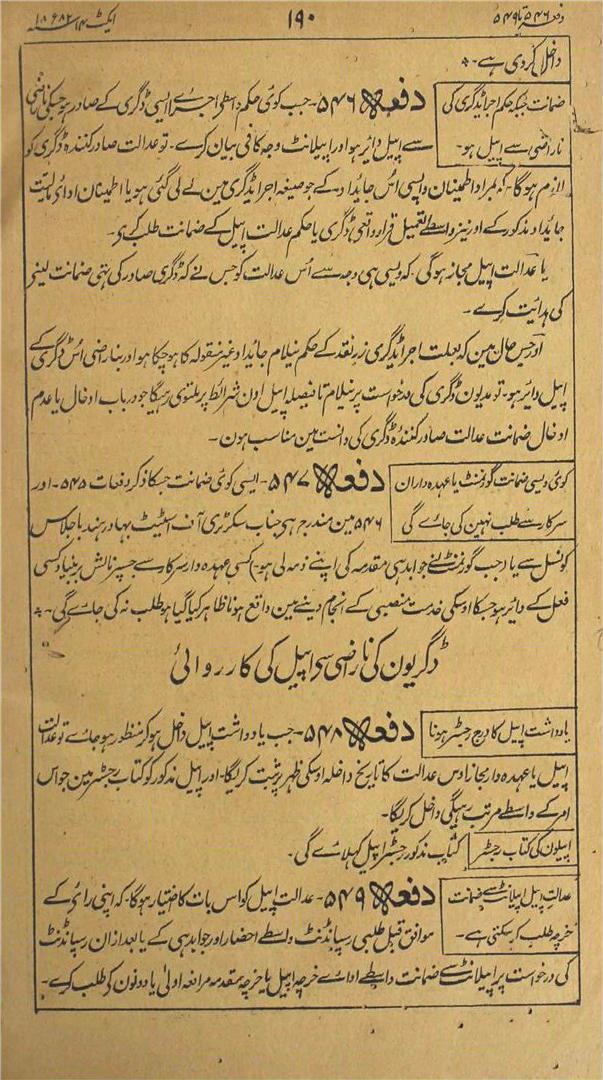 دفعہ ۵۴۶ تا ۵۴۹
۱۹۰
ایکٹ ۱۴ سنہ ۱۸۸۲ع
داخل کردی ہے۔
ضمانت جبکہ حکم اجراے ڈگری کی
ناراضی سے اپیل ہو۔
دفعہ ۵۴۶۔ جب کوئی حکم واسطے اجراے ایسی ڈگری کے صادر ہو جسکی ناراضی
سے اپیل دائر ہو اور اپیلانٹ وجہ کافی بیان کرے۔ تو عدالت صادر کنندہ ڈگری کو
لازم ہوگا۔ کہ بمراد اطمینان واپسی اُس جایداد کے جو صیغہ اجرا ڈگری مین لے لی گئی ہو یا اطمینان ادای مالیت
جایداد مذکور کے اور نیز واسطے التعمیل قرار واقعی ڈگری یا حکم عدالت اپیل کے ضمانت طلب کرے۔
یا عدالت اپیل مجاز ہوگی۔ کہ ویسی ہی وجہ سے اُس عدالت کو جس نے کہ ڈگری صادر کی تھی ضمانت لینی
کی ہدایت کرے۔
اور جس حال مین کہ بعلت اجرا ڈگری زر نقد کے حکم نیلام جایداد غیر منقولہ کا ہو چکا ہو اور بناراضی اُس ڈگری کے
اپیل دائر ہو۔ تو مدیون ڈگری کی درخواست پر نیلام تا فیصلہ اپیل اون شرائط پر ملتوی رہیگا جو درباب ادخال یا عدم
ادخال ضمانت عدالت صادر کنندہ ڈگری کی دانست مین مناسب ہون۔
کوئی ویسی ضمانت گورنمنٹ یا عہدہ داران
سرکار سے طلب نہین کی جائے گی
دفعہ ۵۴۷۔ ایسی کوئی ضمانت جسکا ذکر دفعات ۵۴۵۔ اور
۵۴۶ مین مندرج ہی جناب سکرٹری آف اسٹیٹ بہادر ہند باجلاس
کونسل سے یا (جب گورنمنٹ نے جوابدہی مقدمہ کی اپنے ذمہ لی ہو) کسی عہدہ دار سرکار سے جسپر نالش بر بنیاد کسی
فعل کے دائر ہو جسکا اوسکی خدمت منصبی کے انجام دینے مین واقع ہونا ظاہر کیا گیا ہو طلب نہ کی جائے گی۔
ڈگریون کی ناراضی سے اپیل کی کارروائی
یادداشت اپیل کا درج رجسٹر ہونا
دفعہ ۵۴۸۔ جب یادداشت اپیل داخل ہو کر منظور ہو جائے تو عدالت
اپیل یا عہدہ دار مجاز اوس عدالت کا تاریخ داخلہ اوسکی ظہر پر ثبت کریگا۔ اور اپیل مذکور کو کتاب رجسٹر مین جو اس
امر کے واسطے مرتب رہیگی داخل کریگا۔
اپیلون کی کتاب رجسٹر
کتاب مذکور رجسٹر اپیل کہلائے گی۔
عدالت اپیل اپیلانٹ سے ضمانت
خرچہ طلب کرسکتی ہے۔
دفعہ ۵۴۹۔ عدالت اپیل کو اس بات کا اختیار ہوگا۔ کہ اپنی رائے کے
موافق قبل طلبی رسپانڈنٹ واسطے احضار اور جوابدہی کے یا بعد ازان رسپانڈنٹ
کی درخواست پر اپیلانٹ سے ضمانت واسطے ادائے خرچہ اپیل یا خرچہ مقدمہ مرافعہ اولیٰ یا دونون کی طلب کرے۔